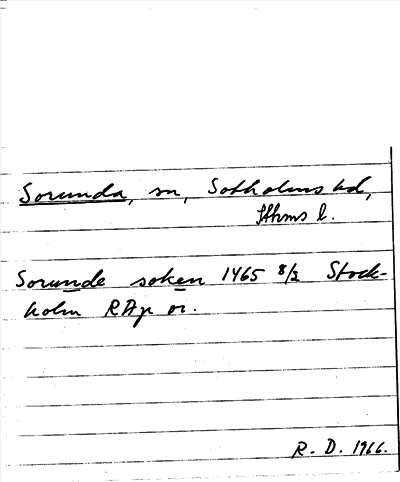 Sorunda, sn, Sotholms hd,
Sthms l.
Sorunde soken 1465 8/3 Stock-
holm RAp or.
R. D. 1966.